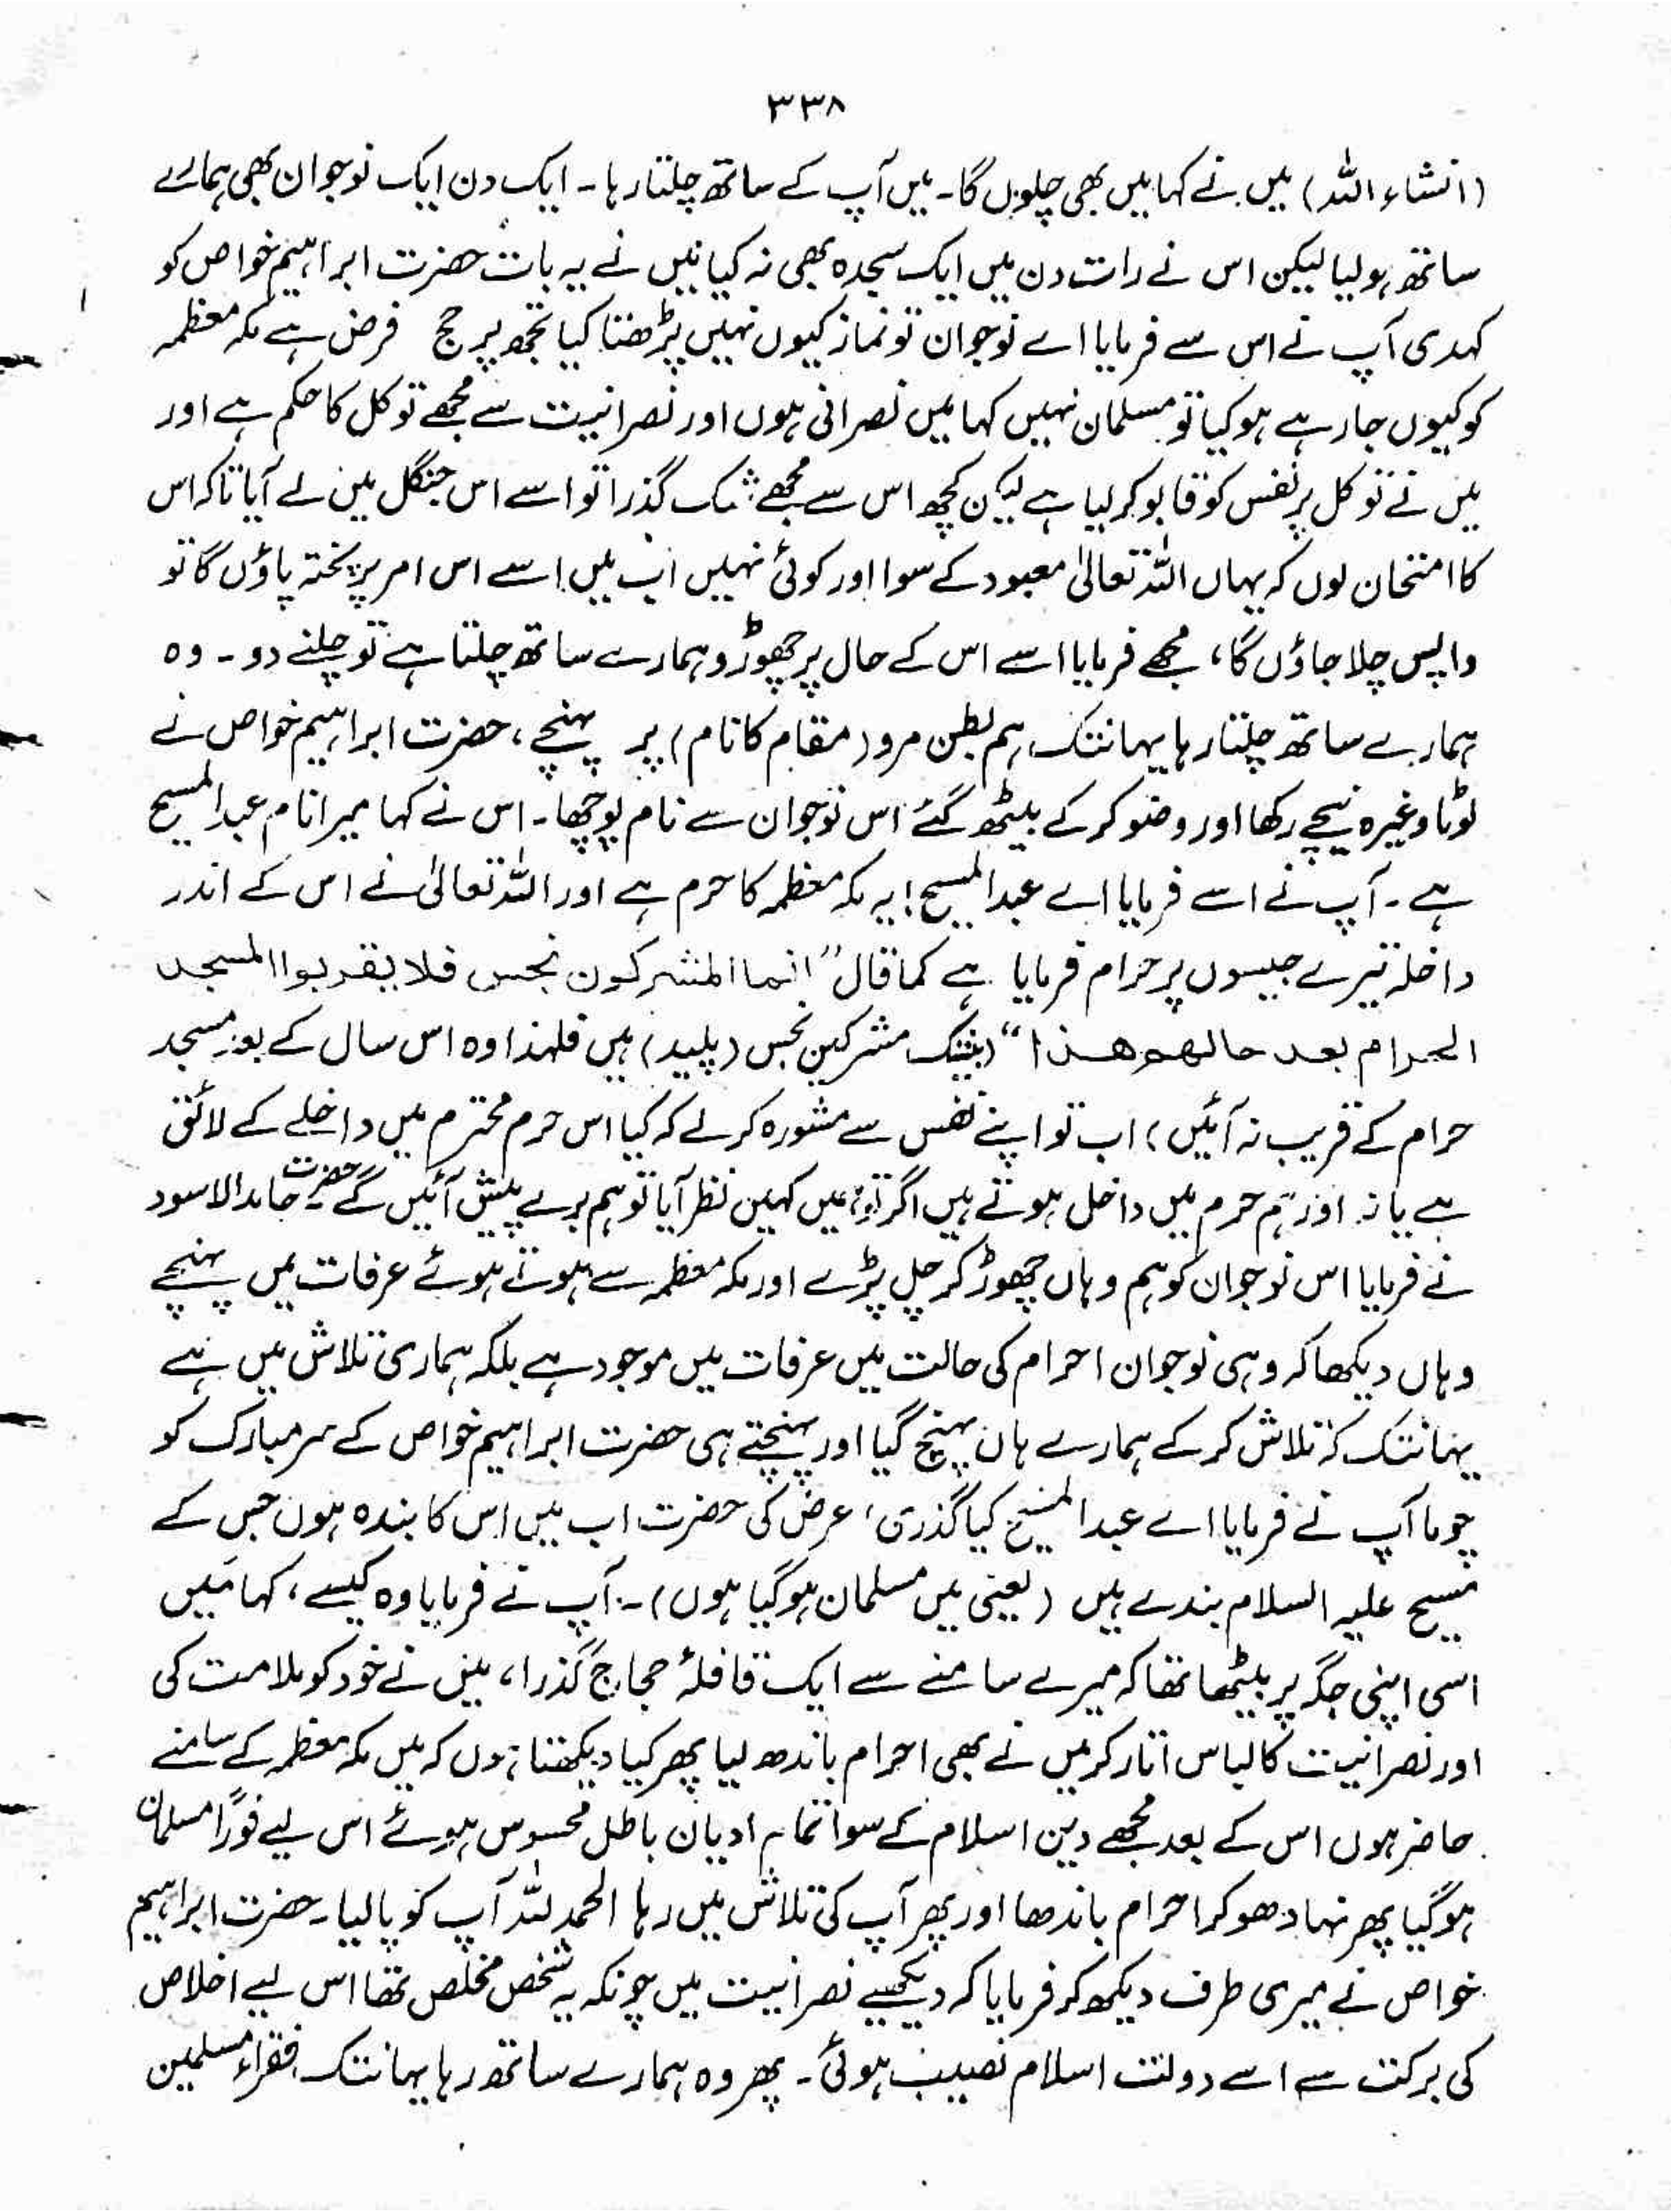 ۳۳۸
(انشاء اللہ) میں نے کہا میں بھی چلوں گا۔ میں آپ کے ساتھ چلتا رہا۔ ایک دن ایک نوجوان بھی ہمارے
ساتھ ہو لیا لیکن اس نے رات دن میں ایک سجدہ بھی نہ کیا میں نے یہ بات حضرت ابراہیم خواص کو
کہدی آپ نے اس سے فرمایا اے نوجوان تو نماز کیوں نہیں پڑھتا کیا تجھ پر حج فرض ہے مکہ معظمہ
کو کیوں جا رہے ہو کیا تو مسلمان نہیں کہا میں نصرانی ہوں اور نصرانیت سے مجھے توکل کا حکم ہے اور
میں نے توکل پر نفس کو قابو کر لیا ہے لیکن کچھ اس سے مجھے شک گذرا تو اسے اس جنگل میں لے آیا تاکہ اس
کا امتحان لوں کہ یہاں اللہ تعالیٰ معبود کے سوا اور کوئی نہیں اب میں اسے اس امر پر پختہ پاؤں گا تو
واپس چلا جاؤں گا، مجھے فرمایا اسے اس کے حال پر چھوڑو ہمارے ساتھ چلتا ہے تو چلنے دو۔ وہ
ہمارے ساتھ چلتا رہا یہانتک ہم بطن مرو (مقام کا نام) پر پہنچے، حضرت ابراہیم خواص نے
لوٹا وغیرہ نیچے رکھا اور وضو کر کے بیٹھ گئے اس نوجوان سے نام پوچھا۔ اس نے کہا میرا نام عبدالمسیح
ہے۔ آپ نے اسے فرمایا اے عبدالمسیح! یہ مکہ معظمہ کا حرم ہے اور اللہ تعالیٰ نے اس کے اندر
داخلہ تیرے جیسوں پر حرام فرمایا ہے کما قال ”انما المشرکون نجس فلا یقربوا المسجد
الحرام بعد حالهم هذا“ (بیشک مشرکین نجس (پلید) ہیں فلہذا وہ اس سال کے بعد مسجد
حرام کے قریب نہ آئیں) اب تو اپنے نفس سے مشورہ کر لے کہ کیا اس حرم محترم میں داخلے کے لائق
ہے یا نہ اور ہم حرم میں داخل ہوتے ہیں اگر تو ہمیں کہیں نظر آیا تو ہم برے پیش آئیں گے حضرت حامد الاسود
نے فرمایا اس نوجوان کو ہم وہاں چھوڑ کر چل پڑے اور مکہ معظمہ سے ہوتے ہوئے عرفات میں پہنچے
وہاں دیکھا کہ وہی نوجوان احرام کی حالت میں عرفات میں موجود ہے بلکہ ہماری تلاش میں ہے
یہانتک کہ تلاش کر کے ہمارے ہاں پہنچ گیا اور پہنچتے ہی حضرت ابراہیم خواص کے سر مبارک کو
چوما آپ نے فرمایا اے عبدالمسیح کیا گذری، عرض کی حضرت اب میں اس کا بندہ ہوں جس کے
مسیح علیہ السلام بندے ہیں (یعنی میں مسلمان ہو گیا ہوں)۔ آپ نے فرمایا وہ کیسے، کہا میں
اسی اپنی جگہ پر بیٹھا تھا کہ میرے سامنے سے ایک قافلۂ حجاج گذرا، میں نے خود کو ملامت کی
اور نصرانیت کا لباس اتار کر میں نے بھی احرام باندھ لیا پھر کیا دیکھتا ہوں کہ میں مکہ معظمہ کے سامنے
حاضر ہوں اس کے بعد مجھے دین اسلام کے سوا تمام ادیان باطل محسوس ہوئے اس لیے فوراً مسلمان
ہو گیا پھر نہا دھو کر احرام باندھا اور پھر آپ کی تلاش میں رہا الحمد للہ آپ کو پا لیا۔ حضرت ابراہیم
خواص نے میری طرف دیکھ کر فرمایا کہ دیکھیے نصرانیت میں چونکہ یہ شخص مخلص تھا اس لیے اخلاص
کی برکت سے اسے دولت اسلام نصیب ہوئی۔ پھر وہ ہمارے ساتھ رہا یہانتک فقراء مسلمین